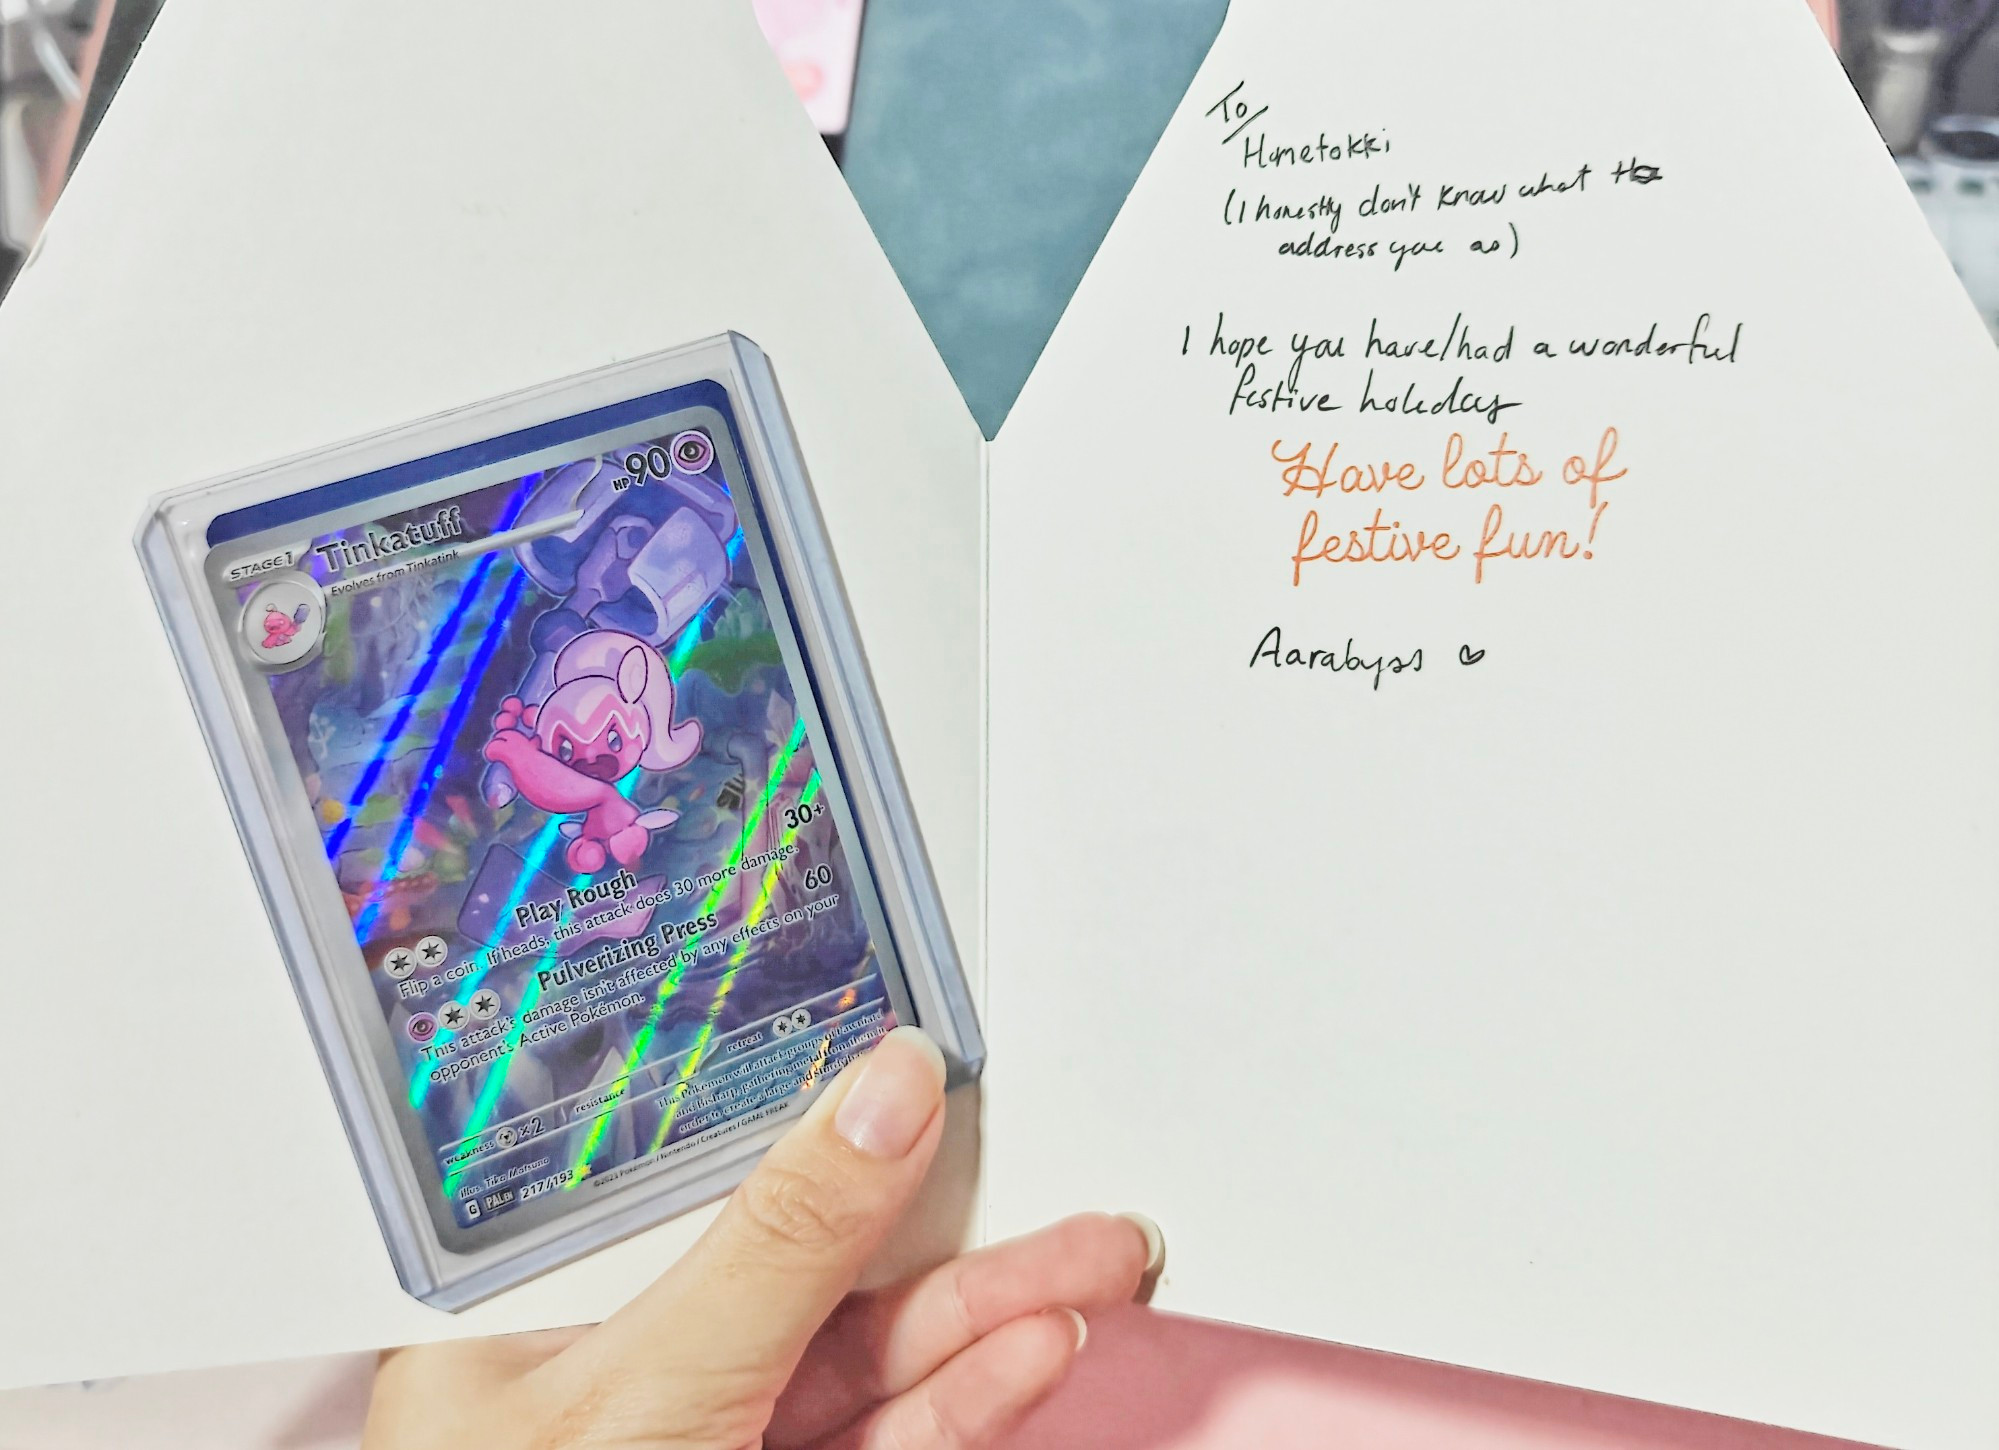 STAGE 1
Tinkatuff
HP 90
Evolves from Tinkatink
Play Rough
30+
Flip a coin. If heads, this attack does 30 more damage.
Pulverizing Press
60
This attack's damage isn't affected by any effects on your
opponent's Active Pokémon.
weakness ×2
resistance
retreat
This Pokémon will attack groups of Pawniard
and Bisharp, gathering metal from them in
order to create a large and sturdy
Illus. Tika Matsuno
G PAL EN 217/193
©2023 Pokémon / Nintendo / Creatures / GAME FREAK
To
Hometokki
(I honestly don't know what
address you as)
I hope you have/had a wonderful
festive holiday
Have lots of
festive fun!
Aarabyss ♡